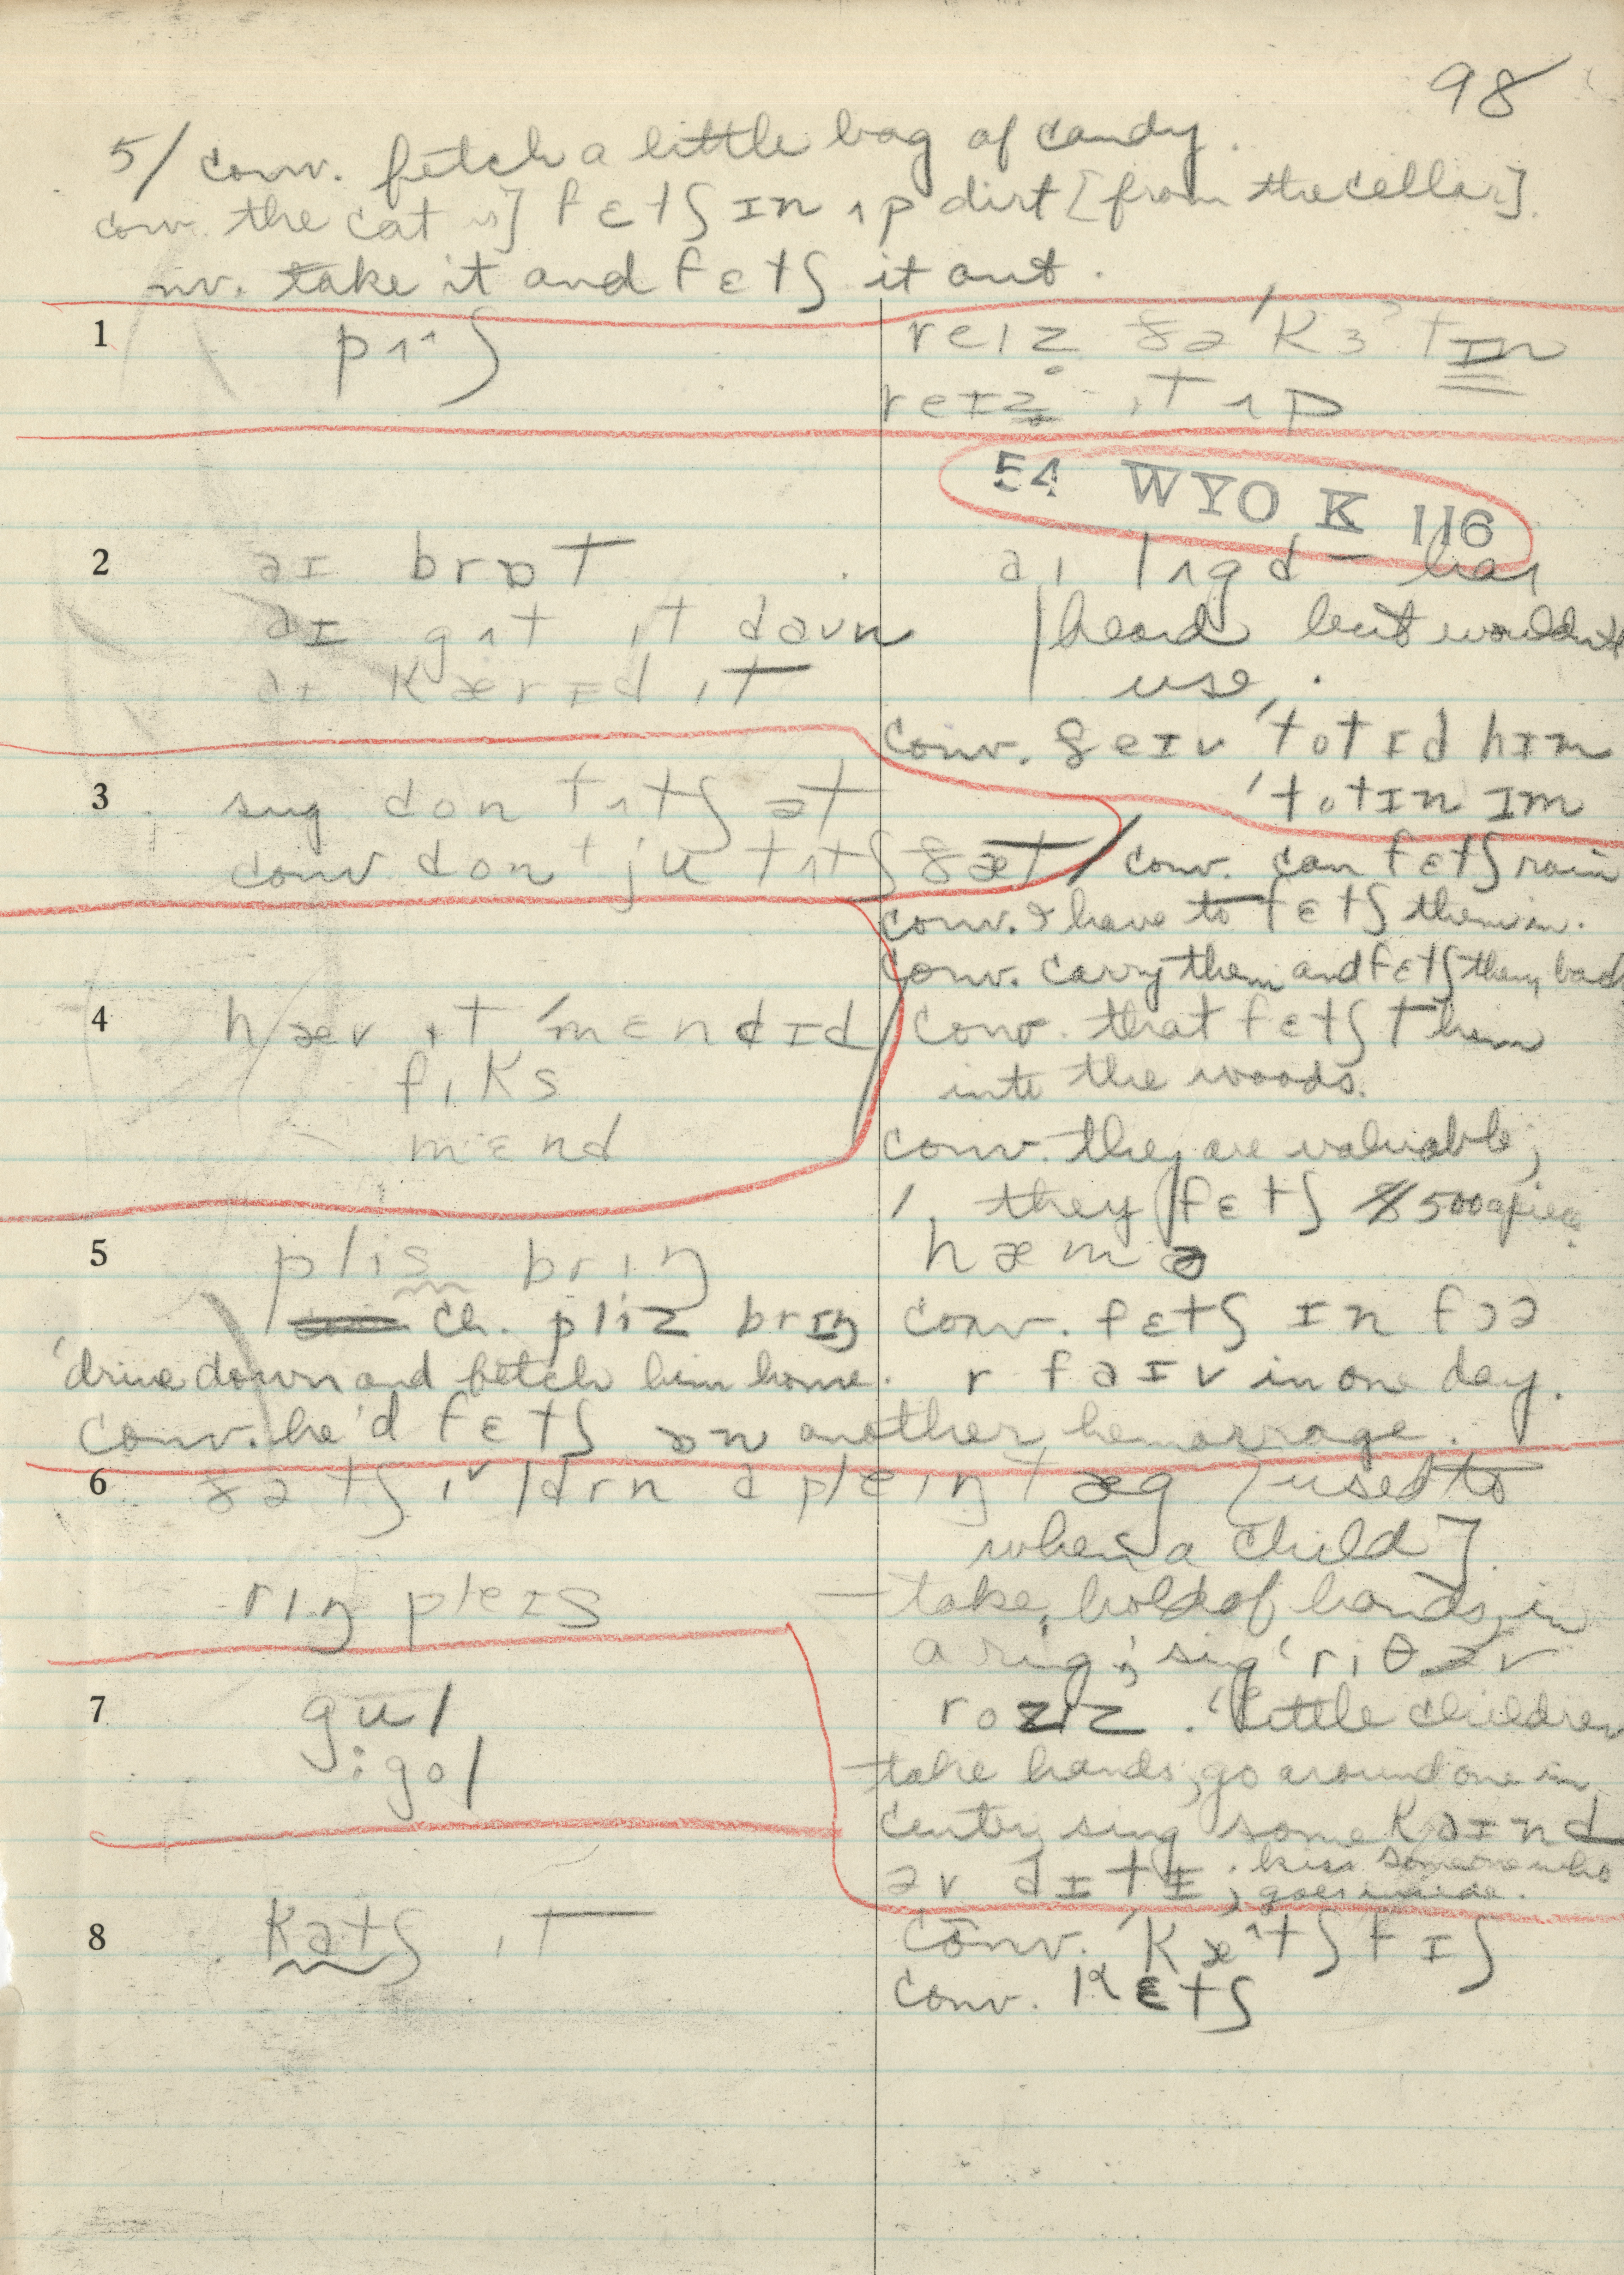 98
5/ conv. fetch a little bag of candy.
conv. the cat is] fɛtʃ ɪn ʌp dirt [from the cellar].
nv. take it and fɛtʃ it out.
1 pᴜʃ
reɪz ðə ˈkɜtɪn
reɪz ɪt ʌp
54 WYO K 116
2 aɪ brɒt
aɪ gʌt ɪt daʊn
aɪ kærɪd ɪt
aɪ lʌgd – has
heard but wouldn't
use.
conv. ðeɪv ˈtotɪd hɪm
ˈtotɪn ɪm
3 sug dont tʌtʃ ət
conv. dont ju tʌtʃ ðæt
conv. can fɛtʃ rain
conv. I have to fɛtʃ them in.
conv. carry them and fɛtʃ them back
4 hæv ɪt ˈmɛndɪd
fɪks
mɛnd
conv. that fɛtʃ them
into the woods.
conv. they are valuable;
they fɛtʃ $500 apiece.
5 plis brɪŋ
hæmə
ch. pliz brɪŋ
conv. fɛtʃ ɪn fɔə
r faɪv in one day.
drive down and fetch him home.
conv. he'd fɛtʃ ɒn another hemorrage.
6 ðə tʃɪldrn ə pleɪŋ tæg [used to
when a child].
rɪŋ pleɪs
– take hold of hands in
a ring; sing 'rɪθ əv
rozɪz. 'little children
take hands, go around one in
center, sing some kaɪnd
əv dɪtɪ; kiss someone who
goes inside.
7 gul
: gol
8 katʃ ɪt
conv. ˈkætʃ fɪʃ
conv. kɛtʃ